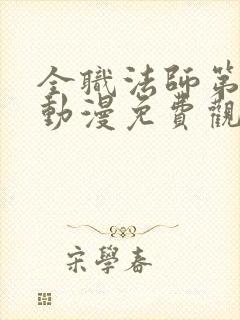 全職法師第
動漫免費觀
宋學春